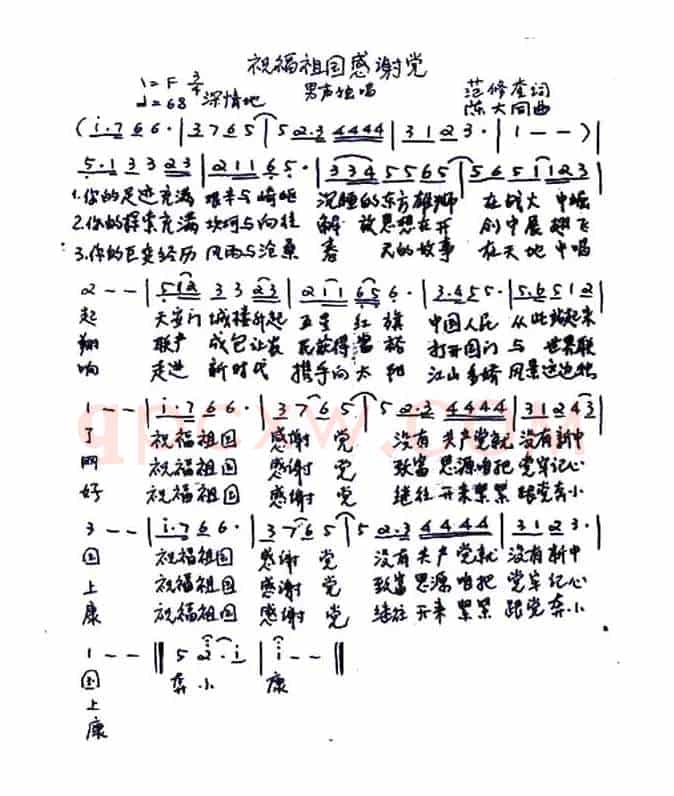 祝福祖国感谢党
1=F 3/4
男声独唱
范修奎词
♩=68 深情地
陈大同曲
(i·7 6 6·|3 7 6 5|5 2·3 4444|3 1 2 3·|1 - -)|
5·1 3 3 2 3|2 1 1 6 5·|3 3 4 5 5 6 5|5 6 5 1 1 2 3
1.你的足迹充满 艰辛与崎岖 沉睡的东方雄狮 在 大 中崛
2.你的探索充满 坎坷与向往 解 放思想在开 创中展翅飞
3.你的巨变经历 风雨与沧桑 春 天的故事 在天地中唱
2 - -|5 1 2 3 3 2 3|2 1 1 6 5 6·|3·4 5 5·|5·6 5 1 2
起 天安门 城楼升起 五星 红 旗 中国人民 从此站起来
翔 联产 承包让农 民获得富裕 打开国门与 世界联
响 走进 新时代 携手向太 阳 江山多娇 风景这边独
1 - -|i·7 6 6·|3 7 6 5|5 2·3 4444|3 1 2 4 3
了 祝福祖国 感谢 党 没有 共产党就 没有新中
网 祝福祖国 感谢 党 致富 思源咱把 党牢记心
好 祝福祖国 感谢 党 继往 开来紧紧 跟党奔小
3 - -|i·7 6 6·|3 7 6 5|5 2·3 4444|3 1 2 3·|
国 祝福祖国 感谢 党 没有共产 党就 没有新中
上 祝福祖国 感谢 党 致富思源 咱把 党牢记心
康 祝福祖国 感谢 党 继往开来 紧紧 跟党奔小
1 - -‖5 2·i|i - -‖
国 奔 小 康
上
康
qpcxw.com